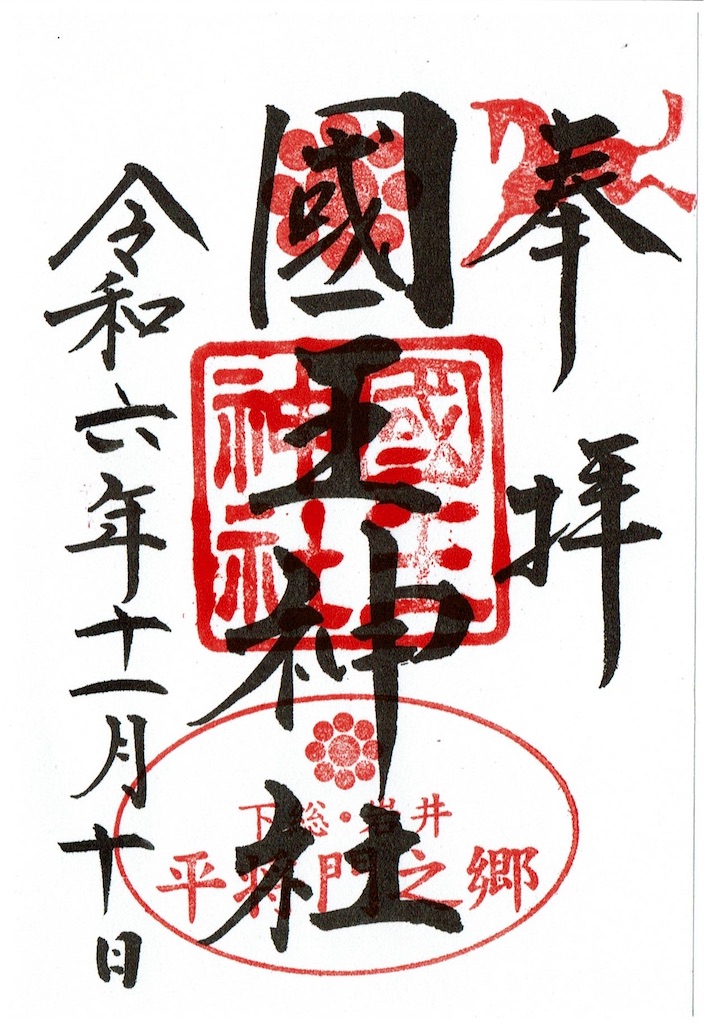 奉拝
國王神社
國王
神社
下総・岩井
平将門之郷
令和六年十一月十日